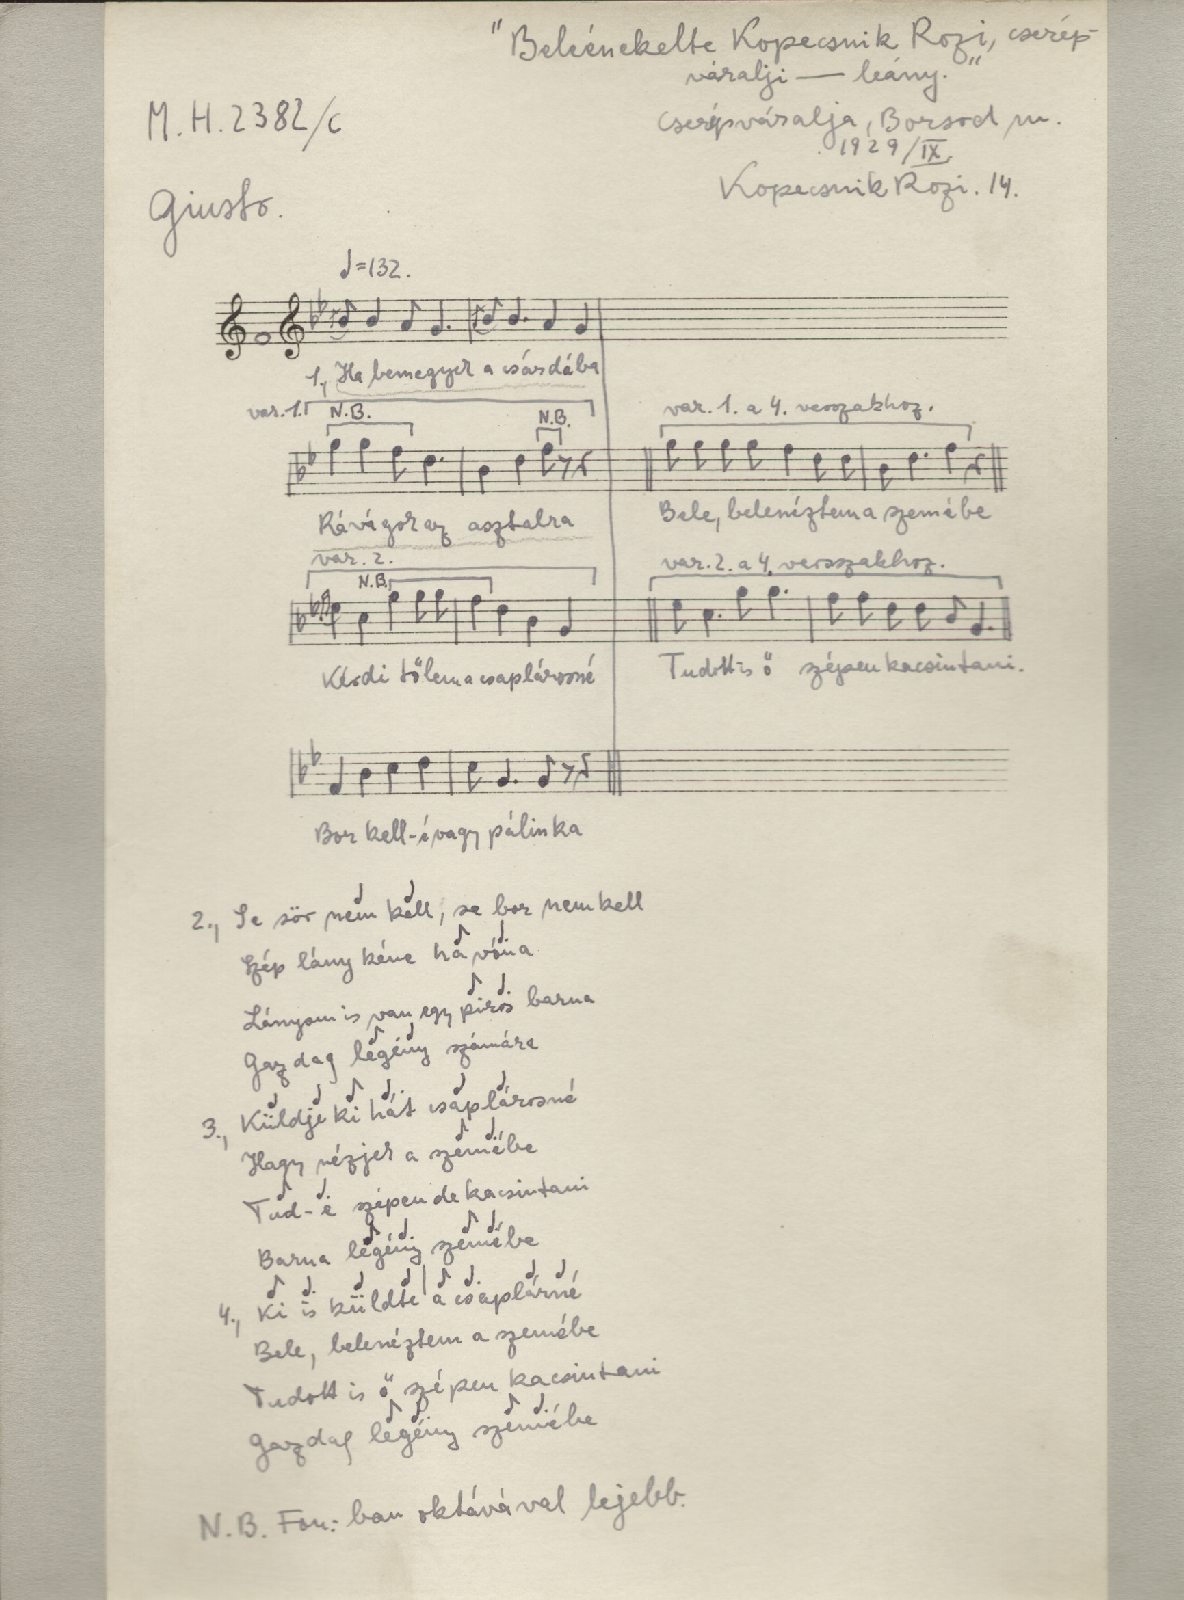 "Beleénekelte Kopecsnik Rozi, cserép-
váralji — leány."
M.H.2382/c
Cserépváralja, Borsod m.
1929/IX.
Kopecsnik Rozi. 14.
Giusto.
♩=132.
1., Ha bemegyek a csárdába
var. 1.
N.B.
N.B.
var. 1. a 4. versszakhoz.
Rávágok az asztalra
Bele, belenéztem a szemébe
var. 2.
N.B.
var. 2. a 4. versszakhoz.
Kérdi tőlem a csaplárosné
Tudott is ő szépen kacsintani.
Bor kell-é vagy pálinka
2., Se sör nem kell, se bor nem kell
Szép lány kéne ha vóna
Lányom is van egy piros barna
Gazdag legény számára
3., Küldje ki hát csaplárosné
Hagy nézjek a szemébe
Tud-e szépen de kacsintani
Barna legény szemébe
4., Ki is küldte a csaplárné
Bele, belenéztem a szemébe
Tudott is ő szépen kacsintani
Gazdag legény szemébe
N.B. Fon:-ban oktávával lejebb.